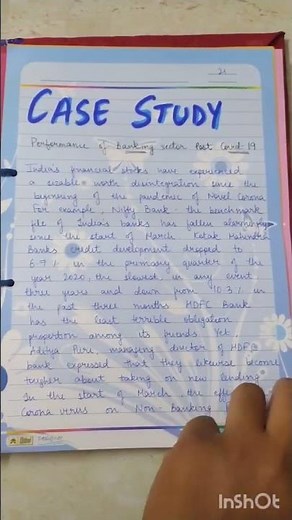 21
CASE STUDY
Performance of Banking sector Post Covid-19
India's financial stocks have experienced
a sizable worth disintegration since the
beginning of the pandemic of Novel Corona
For example, Nifty Bank - the benchmark
file of India's banks has fallen
since the start of March. Kotak Mahindra
Banks credit development dropped to
in the quarter of the
year 2020 the slowest in any event
three years and down from 10.3% in
the past three months. HDFC Bank
has the least terrible obligation
proportion among its friends. Yet
Aditya Puri, managing director of HDFC
bank expressed that they likewise become
tougher about taking on new lending
In the start of March the
Corona virus on Non-Banking
InShOt